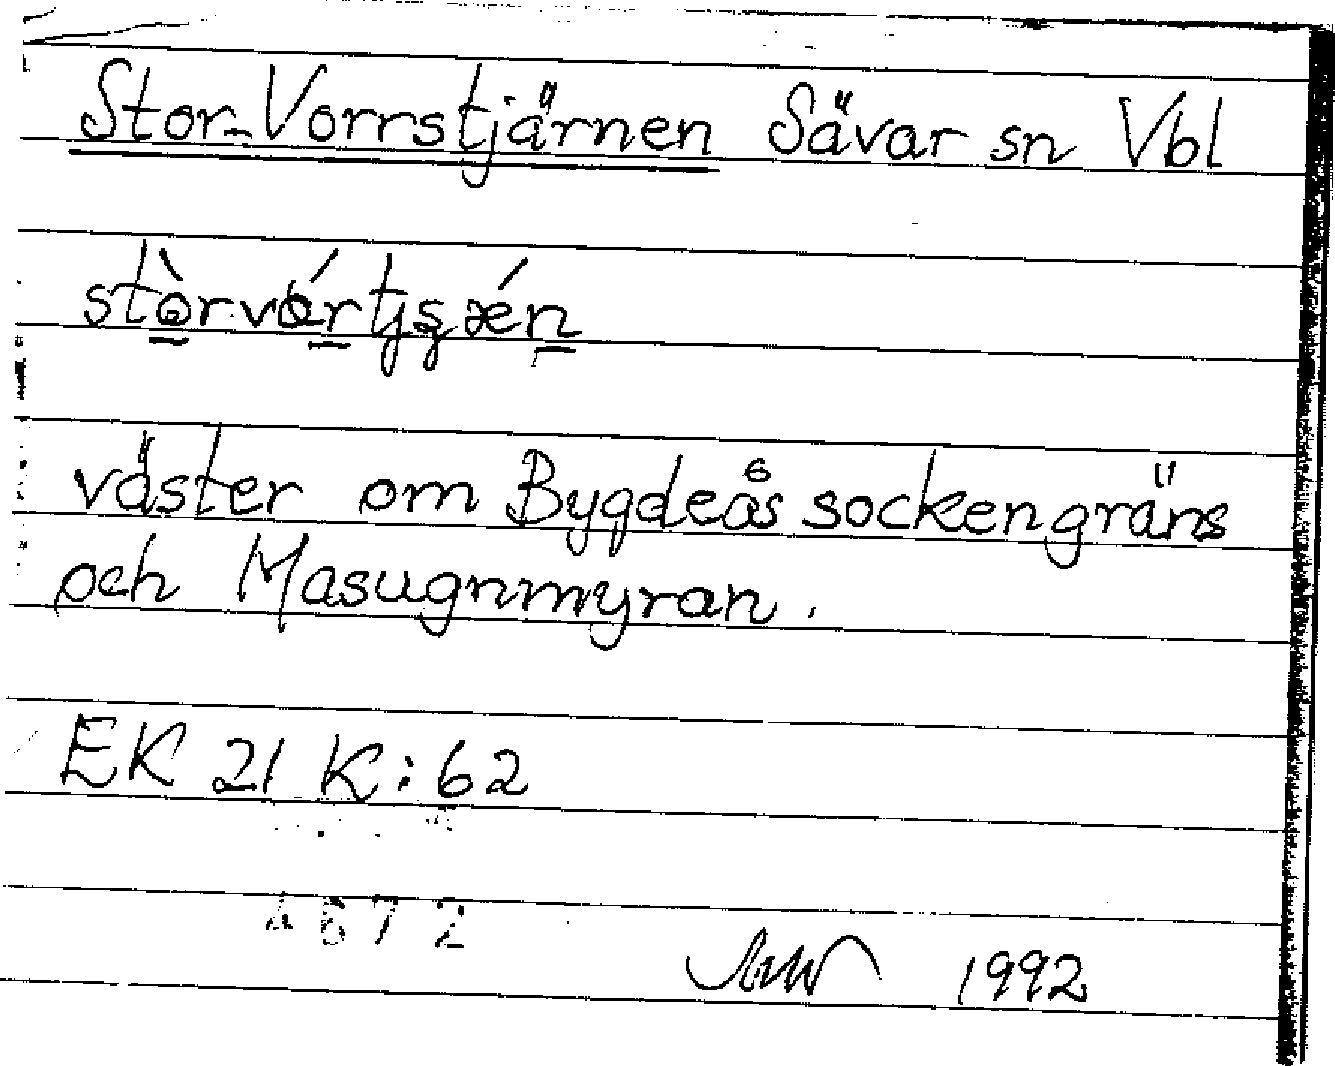 Stor-Vorrstjärnen Sävar sn Vbl
väster om Bygdeås sockengräns
och Masugnmyran.
EK 21 K:62
1992